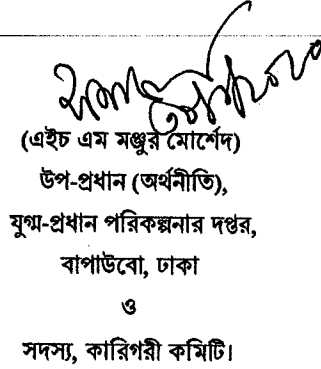 (এইচ এম মঞ্জুর মোর্শেদ)
উপ-প্রধান (অর্থনীতি),
যুগ্ম-প্রধান পরিকল্পনার দপ্তর,
বাপাউবো, ঢাকা
ও
সদস্য, কারিগরী কমিটি।